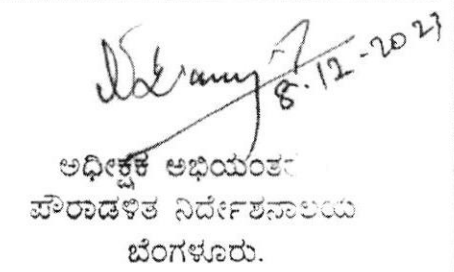 8-12-2023
ಅಧೀಕ್ಷಕ
ಪೌರಾಡಳಿತ ನಿರ್ದೇಶನಾಲಯ
ಬೆಂಗಳೂರು.